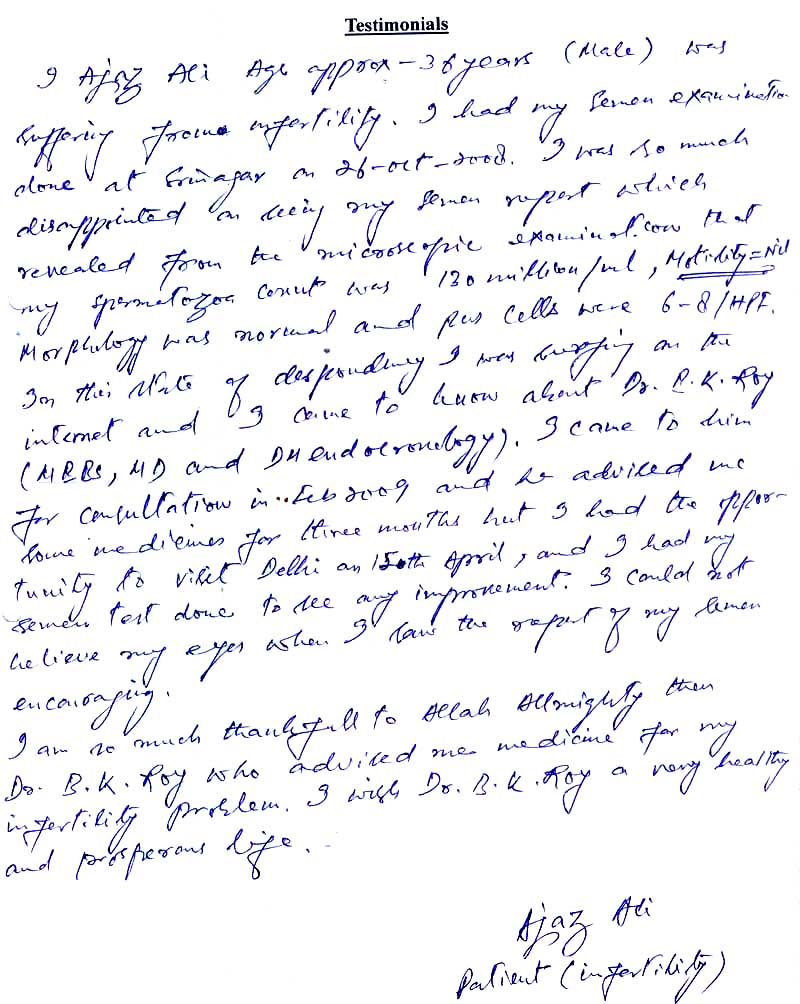 Testimonials
I Ajaz Ali Age approx - 36 years (Male) was
suffering from infertility. I had my semen examination
done at Srinagar on 26-oct-2008. I was so much
disappointed on seeing my semen report which
revealed from the microscopic examination that
my spermatozoa count was 130 million/ml, Motility = Nil
Morphology was normal and pus cells were 6-8/HPF.
In this state of despondency I was surfing on the
internet and I came to know about Dr. B. K. Roy
(MBBS, MD and DM endocronology). I came to him
for consultation in Feb 2009 and he adviced me
some medicines for three months but I had the oppor-
tunity to visit Delhi on 15th April, and I had my
semen test done to see any improvement. I could not
believe my eyes when I saw the report of my semen
encouraging.
I am so much thankfull to Allah Allmighty then
Dr. B. K. Roy who adviced me medicine for my
infertility problem. I wish Dr. B. K. Roy a very healthy
and prosperous life.
Ajaz Ali
Patient (infertility)